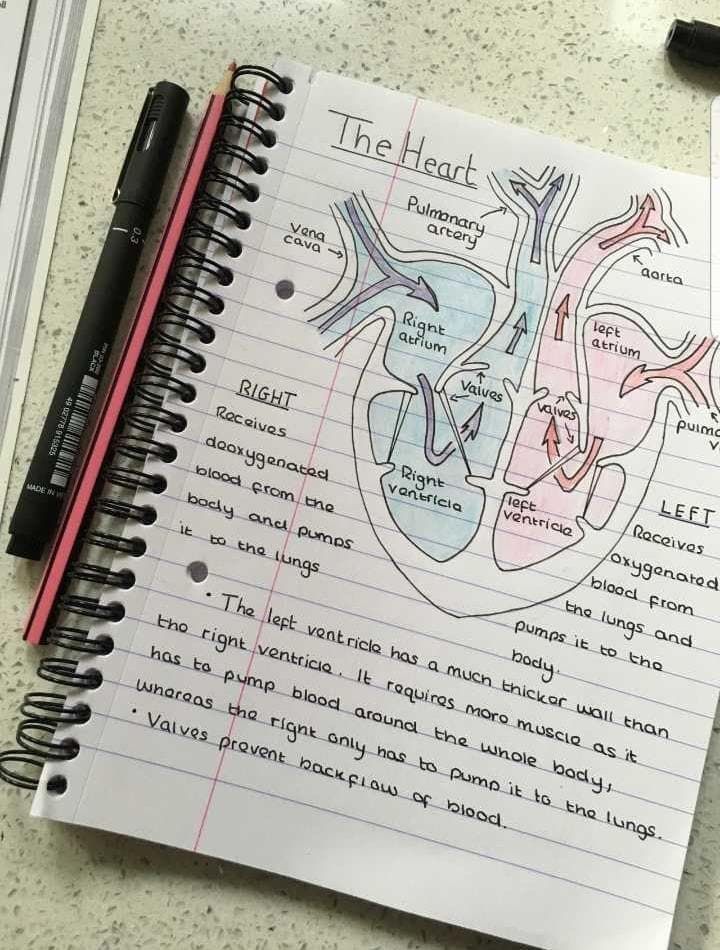 The Heart
Pulmonary
artery
Vena
cava
aorta
Right
atrium
left
atrium
Valves
Valves
Right
ventricle
left
ventricle
RIGHT
Receives
deoxygenated
blood from the
body and pumps
it to the lungs
LEFT
Receives
oxygenated
blood from
the lungs and
pumps it to the
body.
• The left ventricle has a much thicker wall than
the right ventricle. It requires more muscle as it
has to pump blood around the whole body,
whereas the right only has to pump it to the lungs.
• Valves prevent backflow of blood.
0.3
BLACK
MADE IN